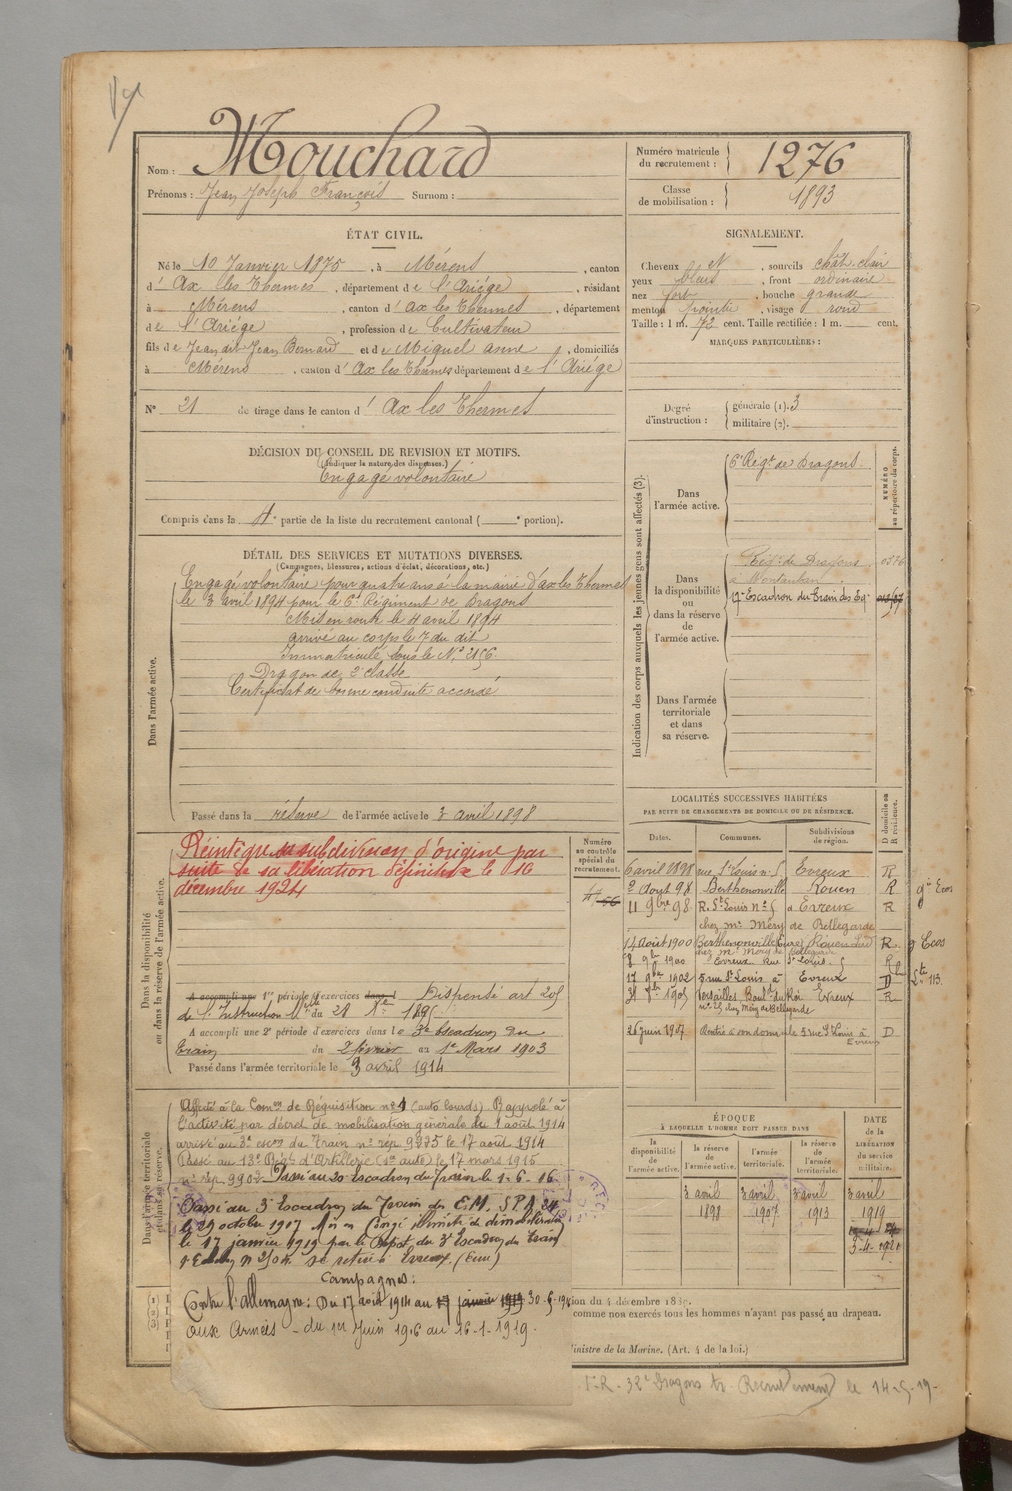 Nom : Mouchard
Prénoms : Jean Joseph François Surnom :
Numéro matricule du recrutement : 1276
Classe de mobilisation : 1893
ÉTAT CIVIL.
Né le 10 Janvier 1875, à Mérens, canton
d'Ax les Thermes, département de l'Ariége, résidant
à Mérens, canton d'Ax les Thermes, département
de l'Ariége, profession de Cultivateur
fils de Jean dit Jean Bernard et de Miquel anne, domiciliés
à Mérens, canton d'Ax les Thermes département de l'Ariége
N° 21 de tirage dans le canton d'Ax les Thermes
SIGNALEMENT.
Cheveux et, sourcils chât. clair
yeux bleus, front ordinaire
nez fort, bouche grande
menton pointu, visage rond
Taille : 1 m. 72 cent. Taille rectifiée : 1 m. cent.
MARQUES PARTICULIÈRES :
Degré d'instruction : générale (1). 3
militaire (2).
DÉCISION DU CONSEIL DE REVISION ET MOTIFS.
(Indiquer la nature des dispenses.)
Engagé volontaire
Compris dans la 4e partie de la liste du recrutement cantonal ( e portion).
DÉTAIL DES SERVICES ET MUTATIONS DIVERSES.
(Campagnes, blessures, actions d'éclat, décorations, etc.)
Dans l'armée active.
Engagé volontaire pour quatre ans à la mairie d'ax les Thermes
le 3 avril 1894 pour le 6e Régiment de Dragons
Mis en route le 4 avril 1894
arrivé au corps le 7 du dit
Immatriculé sous le N° 2156.
Dragon de 2e classe
Certificat de bonne conduite accordé
Passé dans la réserve de l'armée active le 3 avril 1898
Indication des corps auxquels les jeunes gens sont affectés (3).
NUMÉRO au répertoire du corps.
Dans l'armée active.
6e Régt de Dragons.
Dans la disponibilité ou dans la réserve de l'armée active.
Régt de Dragons 0376
à Montauban
Escadron du Train des Eq.
Dans l'armée territoriale et dans sa réserve.
Dans la disponibilité ou dans la réserve de l'armée active.
Réintégré sa subdivision d'origine par
suite de sa libération définitive le 16
décembre 1924
Numéro au contrôle spécial du recrutement.
A accompli une 1re période d'exercices dans l Dispensé art 205
de l'Instruction du 28 Xbre 1895
A accompli une 2e période d'exercices dans le 3e Escadron du
Train du 2 février au 1er Mars 1903
Passé dans l'armée territoriale le 3 avril 1914
LOCALITÉS SUCCESSIVES HABITÉES
PAR SUITE DE CHANGEMENTS DE DOMICILE OU DE RÉSIDENCE.
Dates. Communes. Subdivisions de région. D domicile ou R résidence.
6 avril 1898 rue St Louis n° 5 Evreux R
2 Aout 98 Berthenonville Rouen R gie Ecos
11 9bre 98 R. St Louis n° 5 à Evreux R
chez Mr Méry de Bellegarde
14 Août 1900 Berthenonville (Eure) Rouen Sud R g Ecos
chez Mr Méry de Bellegarde
8 9bre 1900 Evreux Rue St Louis 5 R
17 9bre 1902 5 rue St Louis à Evreux D
31 1905 Versailles Boul. du Roi Evreux R
n° 25 chez Méry de Bellegarde
26 Juin 1907 Rentré à son domicile 5 rue St Louis à Evreux D
Dans l'armée territoriale et dans sa réserve.
Affecté à la Comon de Réquisition n° 4 (auto lourds) Rappelé à
l'activité par décret de mobilisation générale du 1 août 1914
arrivé au 3e escon du Train n° rép 9275 le 17 août 1914
Passé au 13e Régt d'Artillerie (sn auto) le 17 mars 1916
n° rép. 9902. Passé au 20e Escadron du Train le 1-6-16
Passé au 3e Escadron du Train des E.M. S.P.A 24
le 29 octobre 1917 Mis en Congé illimité de démobilisation
le 17 janvier 1919 par le Dépôt du 3e Escadron du Train
se retire à Evreux (Eure)
Campagnes :
Contre l'allemagne : Du 17 août 1914 au 17 janvier 1919 30-5-1916
aux Armées - du 1er Juin 1916 au 16-1-1919.
ÉPOQUE
À LAQUELLE L'HOMME DOIT PASSER DANS
la disponibilité de l'armée active. la réserve de l'armée active. l'armée territoriale. la réserve de l'armée territoriale.
DATE de la LIBÉRATION du service militaire.
3 avril 1898
3 avril 1907
3 avril 1913
3 avril 1919
3-4-1921
ion du 4 décembre 1889.
comme non exercés tous les hommes n'ayant pas passé au drapeau.
Ministre de la Marine. (Art. 4 de la loi.)
F.R. 32e Dragons tr Recrutement le 14-5-19-